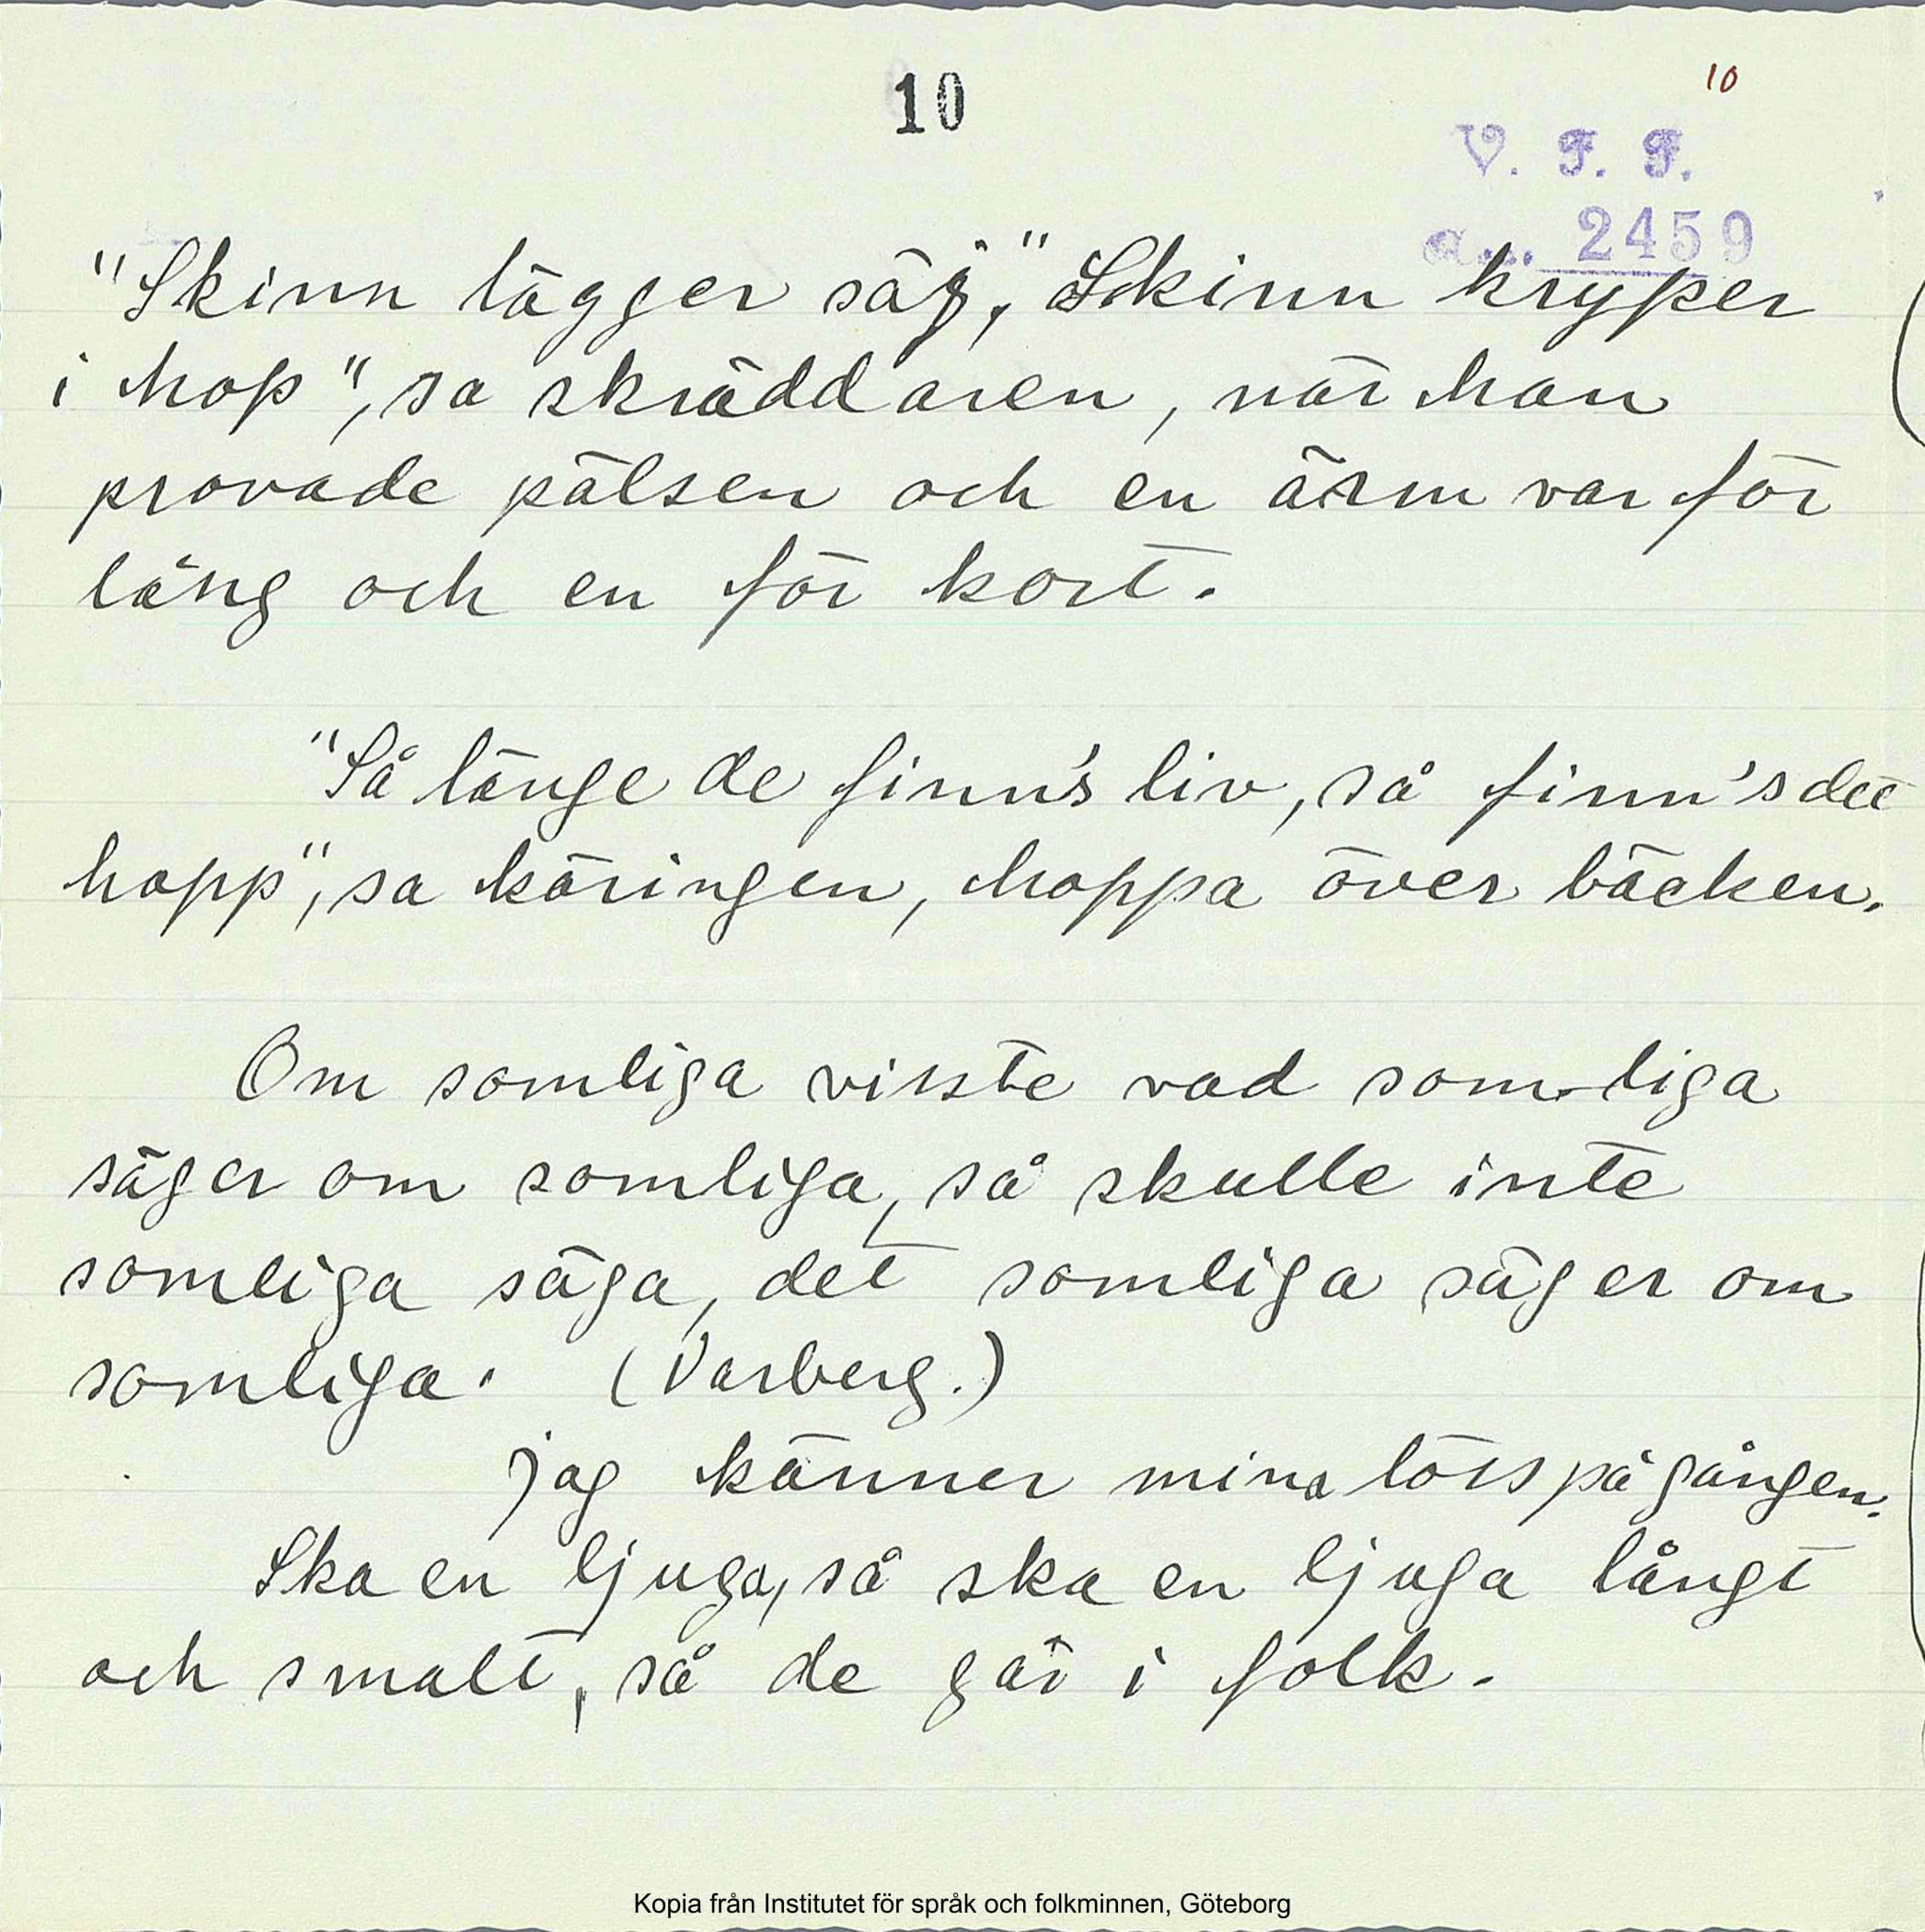 10
10
V. F. F.
a... 2459
"Skinn lägger säj," "Skinn kryper
i hop", sa skräddaren, när han
provade pälsen och en ärm var för
lång och en för kort.
"Så länge de finn's liv, så finn's det
hopp", sa käringen, hoppa över bäcken.
Om somliga visste vad somliga
säger om somliga, så skulle inte
somliga säga, det somliga säger om
somliga. (Varberg.)
Jag känner mina törs på gången.
Ska en ljuga, så ska en ljuga långt
och smalt, så de går i folk.
Kopia från Institutet för språk och folkminnen, Göteborg